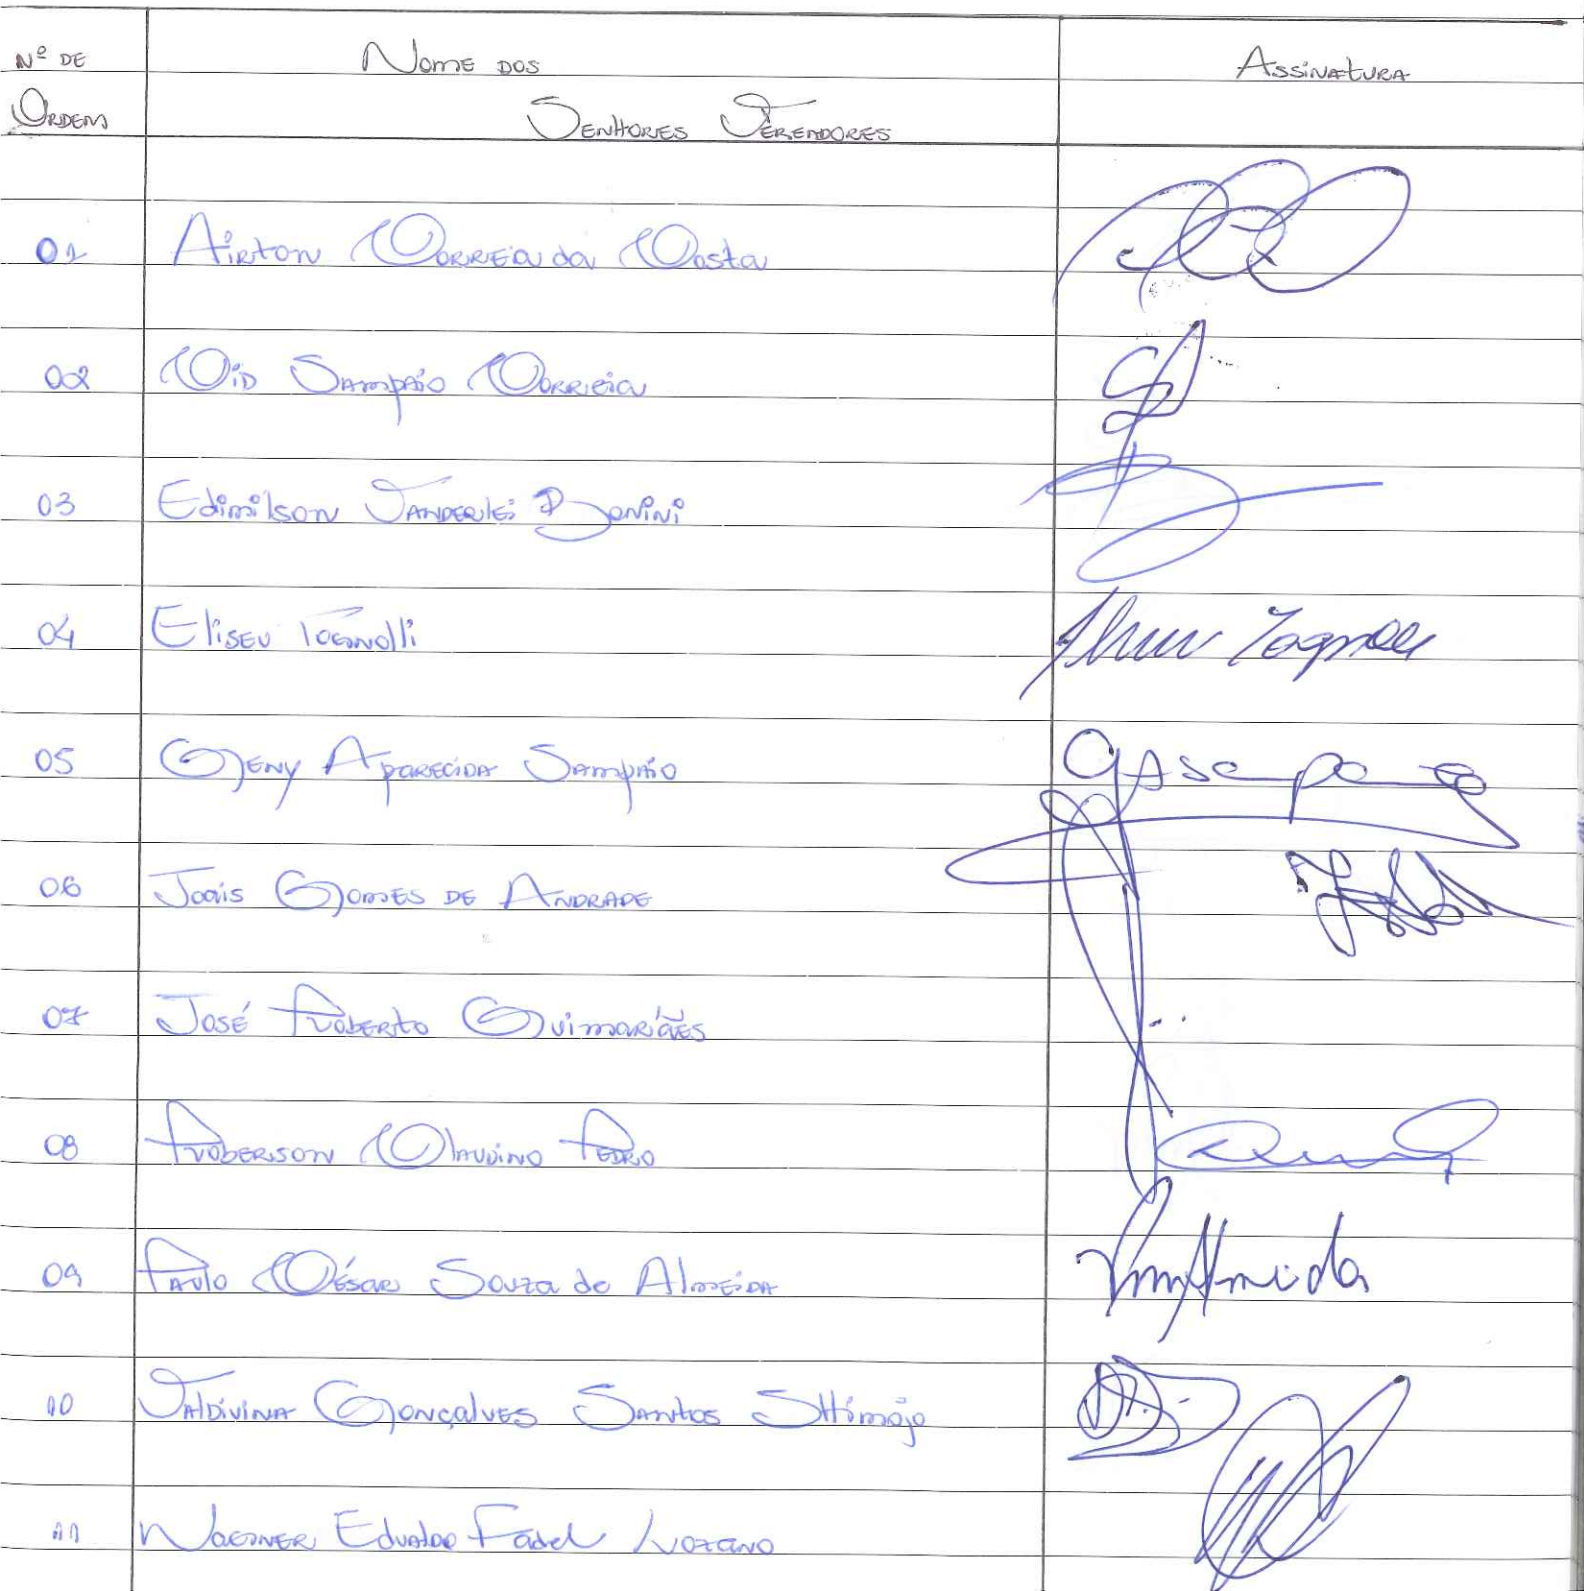 Nº DE Nome DOS Assinatura
Ordem Senhores Vereadores
01 Airton Correia da Costa
02 Cid Sampaio Correia
03 Edimilson Vanderlei Bonini
04 Eliseu Tognolli Tognolli
05 Geny Aparecida Sampaio
06 Joais Gomes de Andrade
07 José Roberto Guimarães
08 Roberson Claudino Pedro
09 Paulo César Souza de Almeida Almeida
10 Valdivina Gonçalves Santos Shimojo
11 Wagner Edvaldo Fadel Lozano